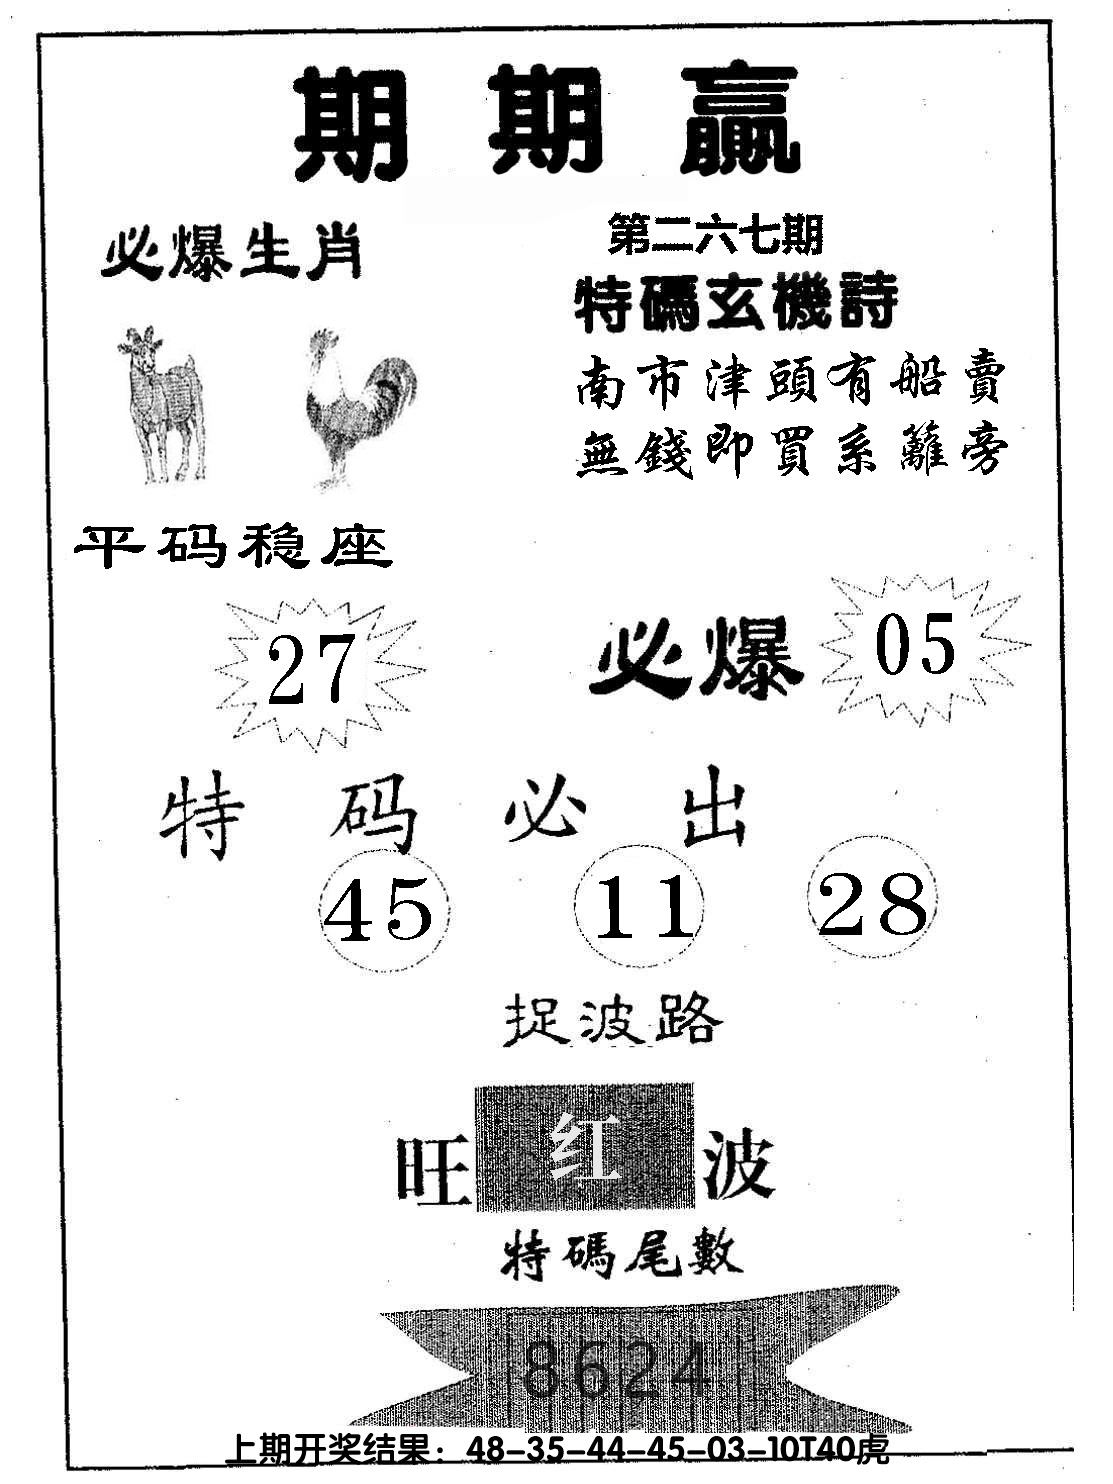 期期赢
必爆生肖
第二六七期
特碼玄機詩
南市津頭有船賣
無錢即買系籬旁
平码稳座
27
必爆 05
特码必出
45 11 28
捉波路
旺红波
特碼尾數
8624
上期开奖结果：48-35-44-45-03-10T40虎